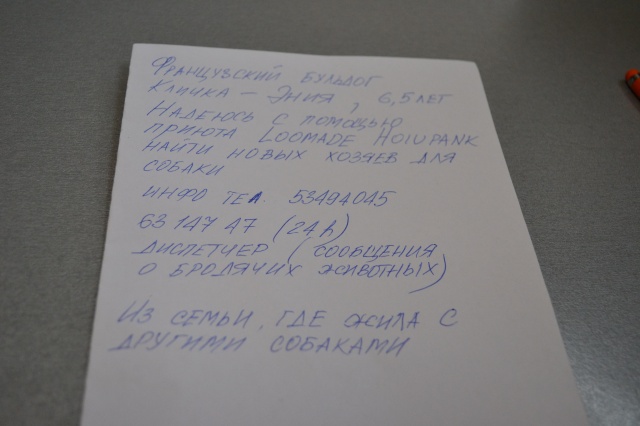 Французский бульдог
Кличка – Эния, 6,5 лет
Надеюсь с помощью
приюта Loomade Hoiupank
найти новых хозяев для
собаки
инфо тел. 53494045
63 147 47 (24h)
диспетчер (сообщения
о бродячих животных)
Из семьи, где жила с
другими собаками